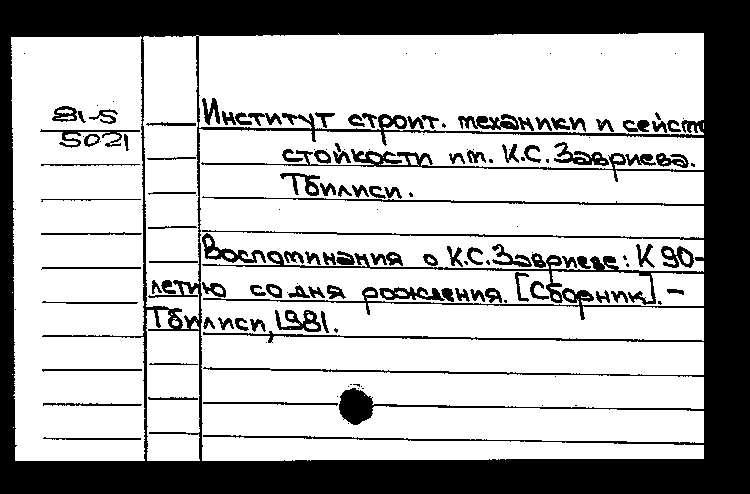 81-5
5021
Институт строит. механики и сейсмо
стойкости им. К.С. Завриева.
Тбилиси.
Воспоминания о К.С.Завриеве: К 90-
летию со дня рождения. [Сборник]. –
Тбилиси, 1981.